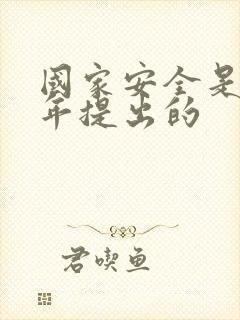 國家安全是
年提出的
君喫魚